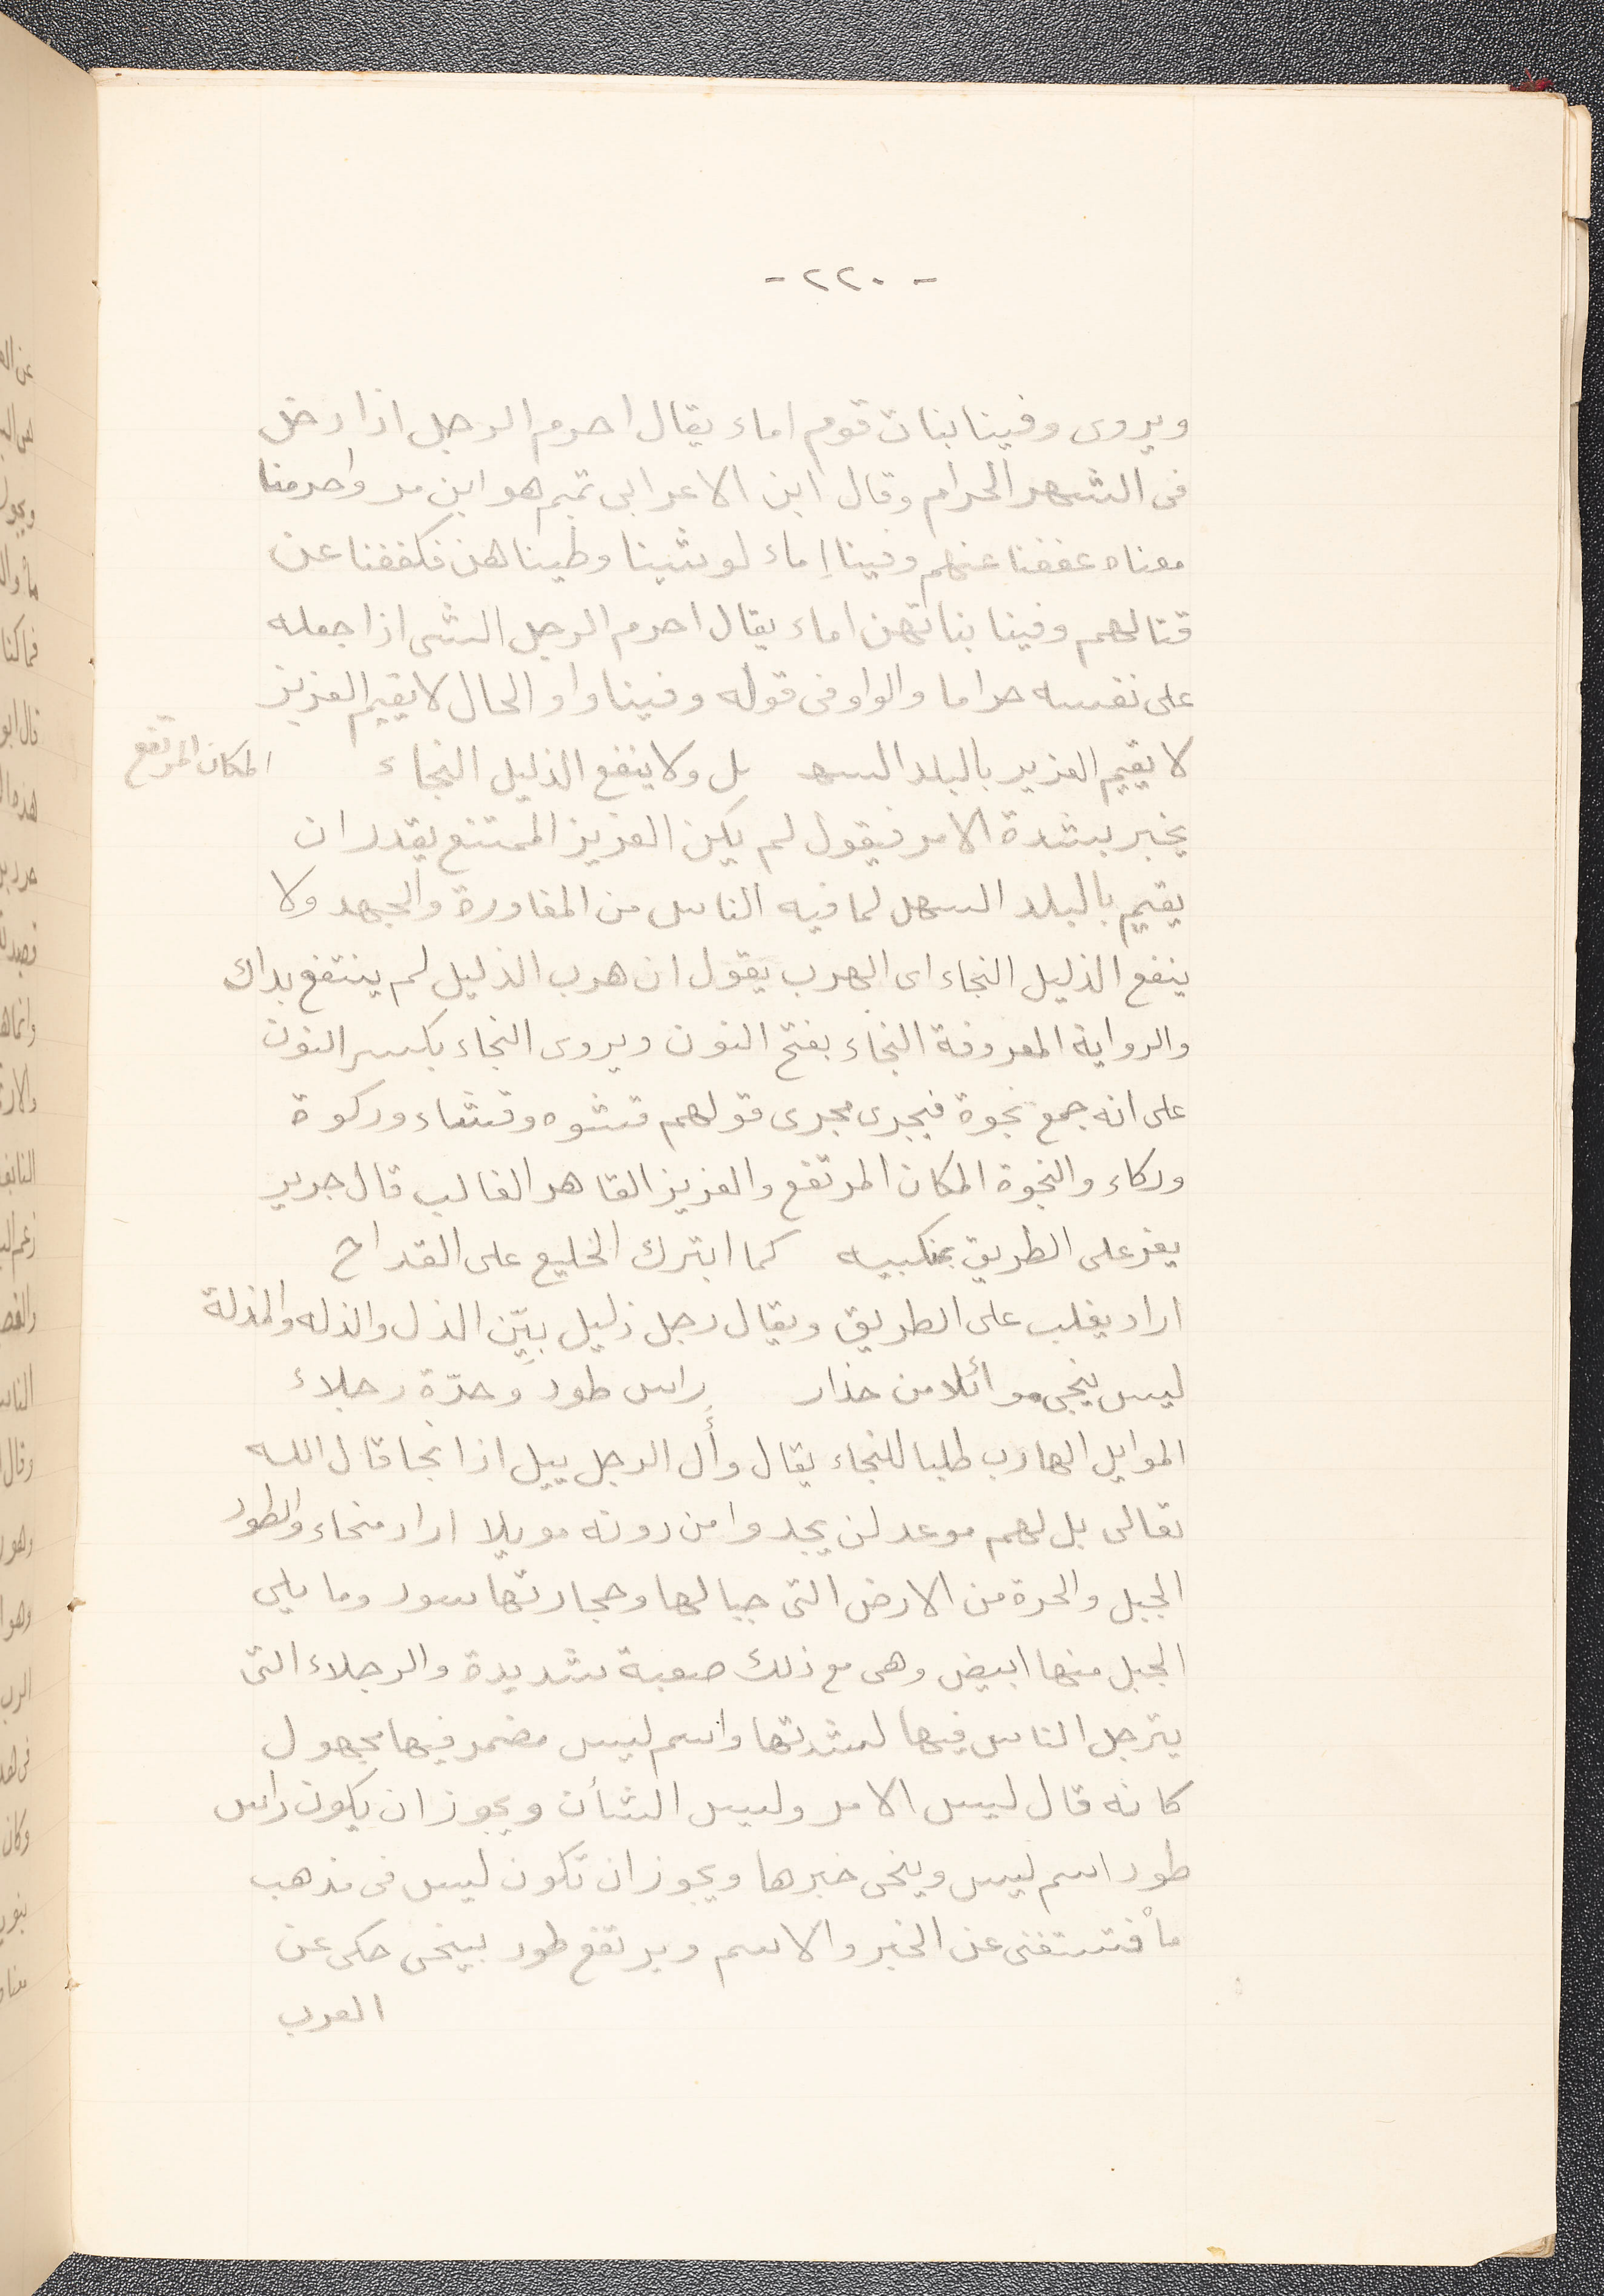 - ٢٢٠ -
ويروى وفينا بنات قوم اماء يقال احرم الرجل اذا دخل
فى الشهر الحرام وقال ابن الاعرابى تميم هو ابن مر واحرمنا
معناه عففنا عنهم وفينا إماء لو شينا وطيناهن فكففنا عن
قتالهم وفينا بناتهن اماء يقال احرم الرجل الشى اذا جعله
على نفسه حراما والواو فى قوله وفينا واو الحال لا يقيم العزيز
لا يقيم العزيز بالبلد السهـ ـل ولا ينفع الذليل النجاء
المكان المرتفع
يخبر بشدة الامر فيقول لم يكن العزيز الممتنع يقدر ان
يقيم بالبلد السهل لما فيه الناس من المغاورة والجهد ولا
ينفع الذليل النجاء اى الهرب يقول ان هرب الذليل لم ينتفع بداك
والرواية المعروفة النجاء بفتح النون ويروى النجاء بكسر النون
على انه جمع نجوة فيجرى مجرى قولهم قشوه وقشاء وركوة
وركاء والنجوة المكان المرتفع والعزيز القاهر الغالب قال جرير
يعز على الطريق بمنكبيه كما ابترك الخليع على القداح
اراد يغلب على الطريق ويقال رجل ذليل بيّن الذل والذله والمذلة
ليس ينجى موائلا من حذار راس طود وحرّة رجلاء
الموايل الهارب طلبا للنجاء يقال وأل الرجل ييل اذا نجا قال الله
تعالى بل لهم موعد لن يجدوا من دونه مويلا اراد منجاء والطود
الجبل والحرة من الارض التى جبالها وحجارتها سود وما يلى
الجبل منها ابيض وهى مع ذلك صعبة شديدة والرجلاء التى
يترجل الناس فيها لشدتها واسم ليس مضمر فيها مجهول
كانه قال ليس الامر وليس الشأن ويجوز ان يكون راس
طود اسم ليس وينجى خبرها ويجوز ان تكون ليس فى مذهب
ما فتستغنى عن الخبر والاسم ويرتفع طود بينجى حكى عن
العرب